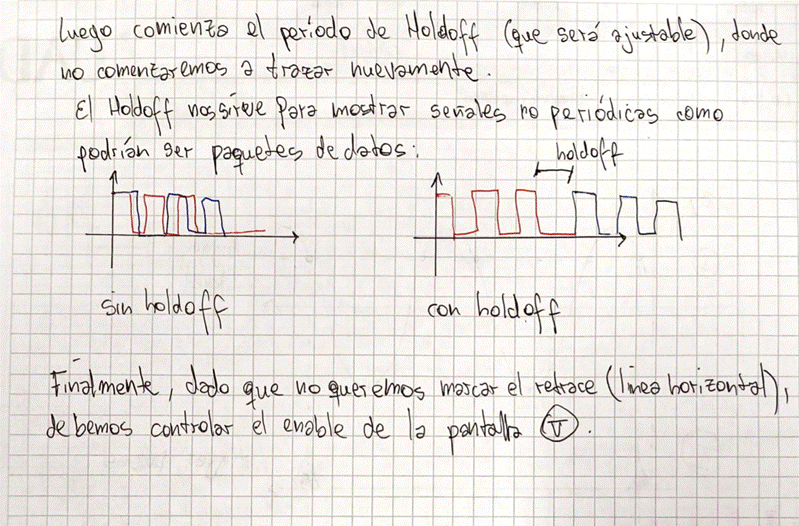 Luego comienza el período de Holdoff (que será ajustable), donde
no comenzaremos a trazar nuevamente.
El Holdoff nos sirve para mostrar señales no periódicas como
podrían ser paquetes de datos:
holdoff
sin holdoff
con holdoff
Finalmente, dado que no queremos marcar el retrace (línea horizontal),
debemos controlar el enable de la pantalla V.